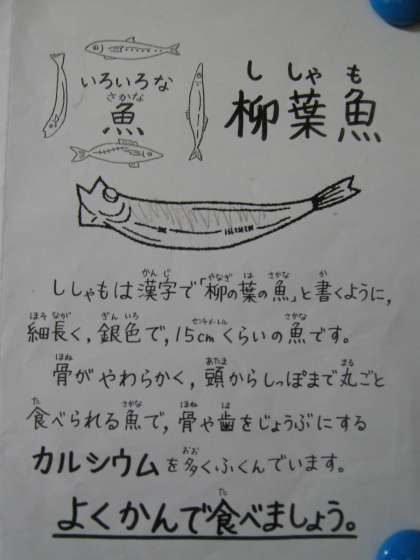 いろいろな
さかな
魚
ししゃも
柳葉魚
かんじ やなぎ は さかな か
ししゃもは漢字で「柳の葉の魚」と書くように,
ほそなが ぎんいろ センチメートル さかな
細長く,銀色で,15cmくらいの魚です。
ほね あたま まる
骨がやわらかく,頭からしっぽまで丸ごと
た さかな ほね は
食べられる魚で,骨や歯をじょうぶにする
おお
カルシウムを多くふくんでいます。
た
よくかんで食べましょう。